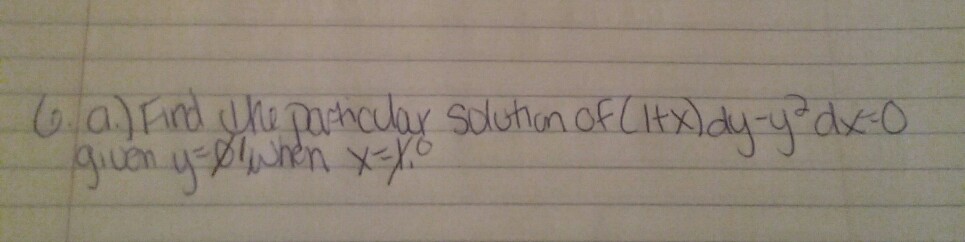 6. a.) Find the particular solution of (1+x)dy-y²dx=0
given y=1 when x=0